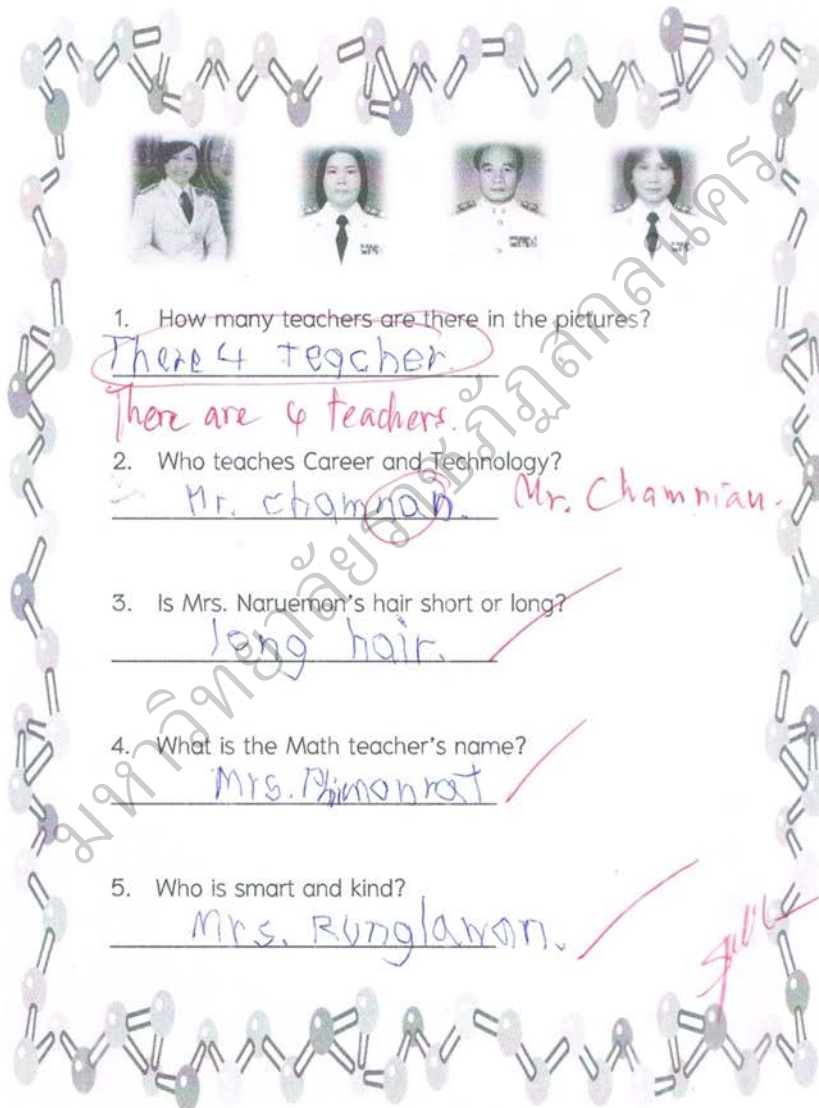 1. How many teachers are there in the pictures?
There 4 teacher.
There are 4 teachers.
2. Who teaches Career and Technology?
Mr. chamnan. Mr. Chamnian.
3. Is Mrs. Naruemon's hair short or long?
long hair.
4. What is the Math teacher's name?
Mrs. Phimonrat
5. Who is smart and kind?
Mrs. Runglawan.
มหาวิทยาลัยราชภัฏสกลนคร